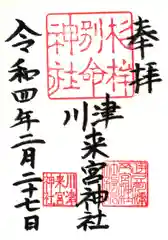 奉拝
川津来宮神社
杉桙別命神社
川津来宮神社
令和四年二月二十七日